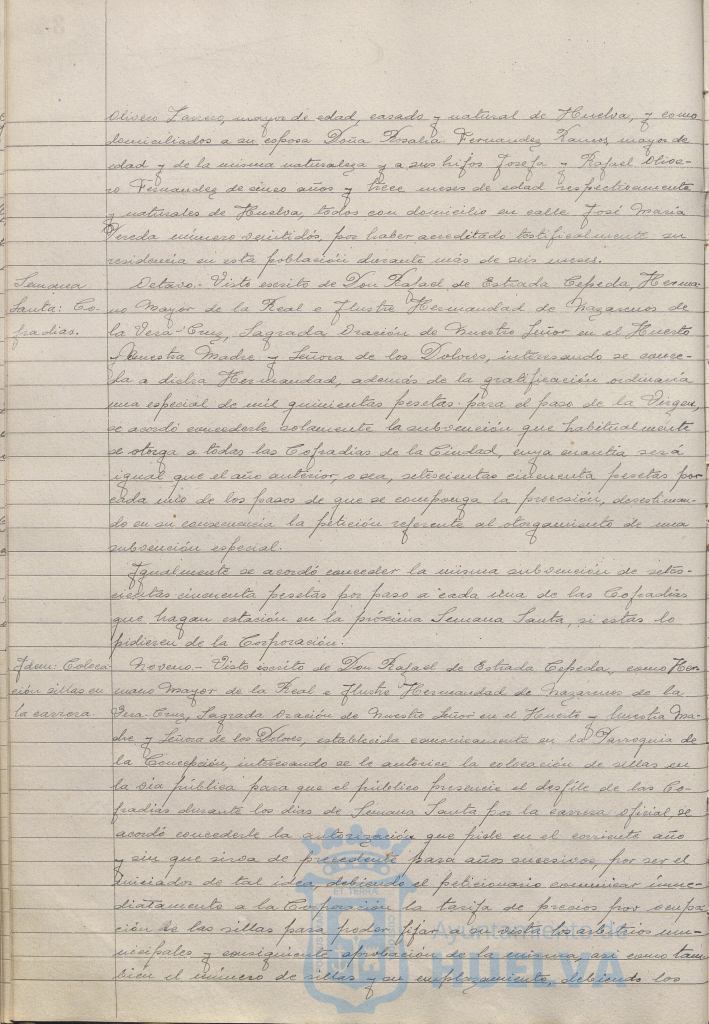 Olivero Zarrero, mayor de edad, casado y natural de Huelva, y como
domiciliados a su esposa Doña Rosalia Fernandez Ramos, mayor de
edad y de la misma naturaleza y a sus hijos Josefa y Rafael Olive-
ro Fernandez de cinco años y trece meses de edad respectivamente
y naturales de Huelva, todos con domicilio en calle José Maria
Pereda número veintidós, por haber acreditado testificalmente su
residencia en esta población durante más de seis meses.
Semana
Santa: Co-
fradias.
Octavo.- Visto escrito de Don Rafael de Estrada Cepeda, Herma-
no Mayor de la Real e Ilustre Hermandad de Nazarenos de
la Vera-Cruz, Sagrada Oración de Nuestro Señor en el Huerto
y Nuestra Madre y Señora de los Dolores, interesando se conce-
da a dicha Hermandad, además de la gratificación ordinaria
una especial de mil quinientas pesetas para el paso de la Virgen,
se acordó concederle solamente la subvención que habitualmente
se otorga a todas las Cofradias de la Ciudad, cuya cuantia será
igual que el año anterior, o sea, setecientas cincuenta pesetas por
cada uno de los pasos de que se componga la procesión, desestiman-
do en su consecuencia la petición referente al otorgamiento de una
subvención especial.
Igualmente se acordó conceder la misma subvención de sete-
cientas cincuenta pesetas por paso a cada una de las Cofradias
que hagan estación en la próxima Semana Santa, si estas lo
pidieren de la Corporación.
Idem: Coloca-
ción sillas en
la carrera.
Noveno.- Visto escrito de Don Rafael de Estrada Cepeda, como Her-
mano Mayor de la Real e Ilustre Hermandad de Nazarenos de la
Vera-Cruz, Sagrada Oración de Nuestro Señor en el Huerto y Nuestra Ma-
dre y Señora de los Dolores, establecida canonicamente en la Parroquia de
la Concepción, interesando se le autorice la colocación de sillas en
la via pública para que el público presencie el desfile de las Co-
fradias durante los dias de Semana Santa por la carrera oficial, se
acordó concederle la autorización que pide en el corriente año
y sin que sirva de precedente para años sucesivos, por ser el
iniciador de tal idea, debiendo el peticionario comunicar inme-
diatamente a la Corporación la tarifa de precios por ocupa-
ción de las sillas para poder fijar a su vista los arbitrios mu-
nicipales y consiguiente aprobación de la misma, asi como tam-
bien el número de sillas y su emplazamiento, debiendo los
ET TERRA
Ayuntamiento de
HUELVA